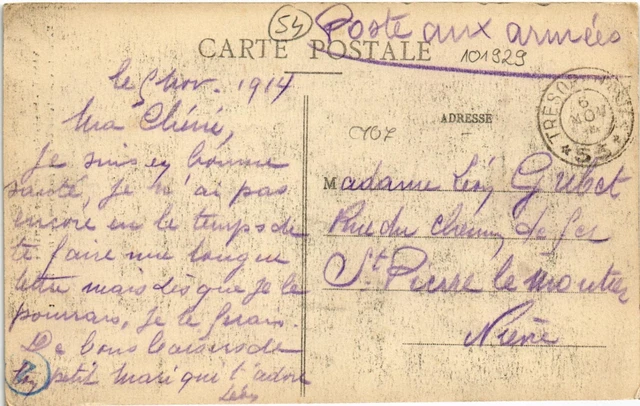 54
Poste aux armées
CARTE POSTALE
101929
le 5 Nov. 1914
Ma Chérie,
Je suis en bonne
santé, Je n'ai pas
encore eu le temps de
te faire une longue
lettre mais dès que je le
pourrais, je le ferais
De bons baisers de
ton petit mari qui t'adore
Léon
ADRESSE
TRESOR ET POSTES
6 NOV
* 54 *
Madame Léon Grebet
Rue du chemin de fer
St Pierre le moutier
Nièvre